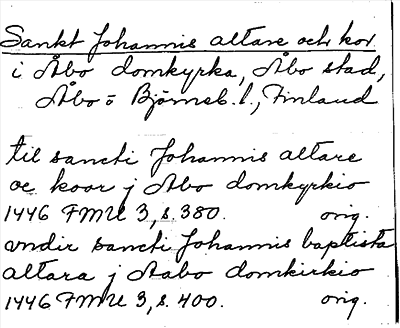 Sankt Johannis altare och kor
i Åbo domkyrka, Åbo stad,
Åbo o Björneb. l., Finland
til sancti Johannis altare
oc koor j Abo domkyrkio
1446 FMU 3, s. 380. orig.
vndir sancti Johannis baptista
altara j Aabo domkirkio
1446 FMU 3, s. 400. orig.